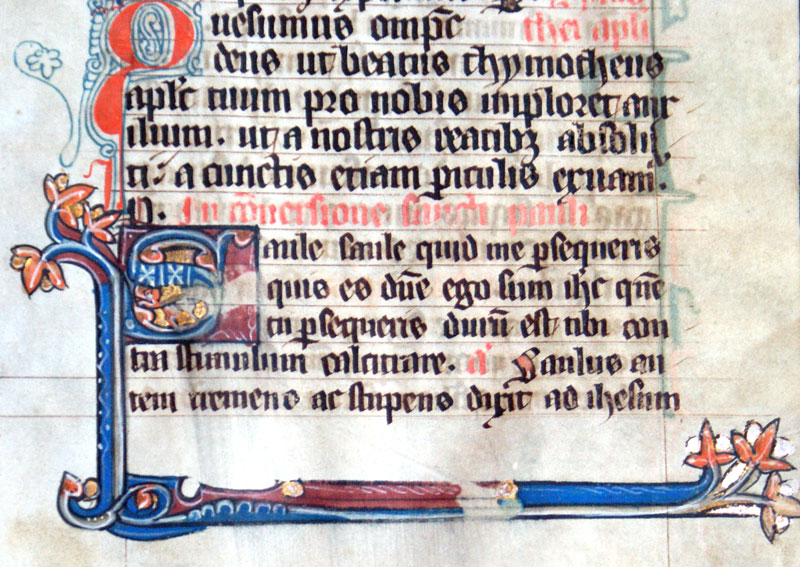 uesumus omp̄c
thei apli
deus ut beatus thymotheus
aplc̄ tuum pro nobis imploret aux
ilium. ut a nostris reatibꝫ absolu
ti. a cunctis etiam ꝑiculis eruam̄.
In ꝯuersione sancti pauli
Saule saule quid me ꝑsequeris
quis es dn̄e ego sum ihc quē
tu ꝑsequeris durū est tibi con
tra stimulum calcitrare. a Saulus au
tem tremens ac stupens dixit ad ihesum